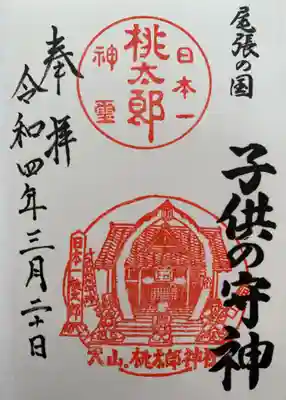 尾張の国
子供の守神
日本一
桃太郎
神霊
犬山・桃太郎神社
奉拝
令和四年三月二十日